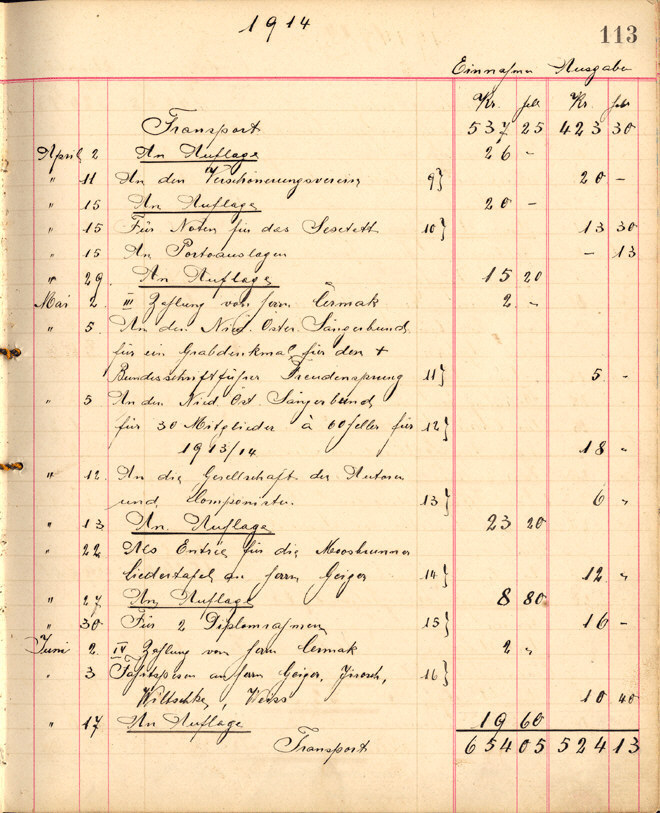 1914
113
Einnahmen Ausgaben
Kr. hell Kr. hell
Transport 537 25 423 30
April 2 An Auflage 26 –
" 11 An den Verschönerungsverein 9} 20 –
" 15 An Auflage 20 –
" 15 Für Noten für das Sextett 10} 13 30
" 15 An Portoauslagen – 13
" 29. An Auflage 15 20
Mai 2. III Zahlung von Herrn Čermak 2 –
" 5. An den Nied. Öster. Sängerbund
für ein Grabdenkmal für den +
Bundesschriftführer Freudensprung 11} 5. –
" 5 An den Nied. Öst. Sängerbund
für 30 Mitglieder à 60 Heller für 12}
1913/14 18 "
" 12. An die Gesellschaft der Autoren
und Componisten. 13} 6 "
" 13 An Auflage 23 20
" 22 Als Entrée für die Moosbrunner
Liedertafel an Herrn Geiger 14} 12 "
" 27 An Auflage 8 80
" 30 Für 2 Diplomrahmen 15} 16 –
Juni 2. IV Zahlung von Herrn Čermak 2 "
" 3 Fahrtspesen an Herrn Geiger, Jirosch, 16}
Wiltschke, Weiss 10 40
" 17 An Auflage 19 60
Transport 654 05 524 13